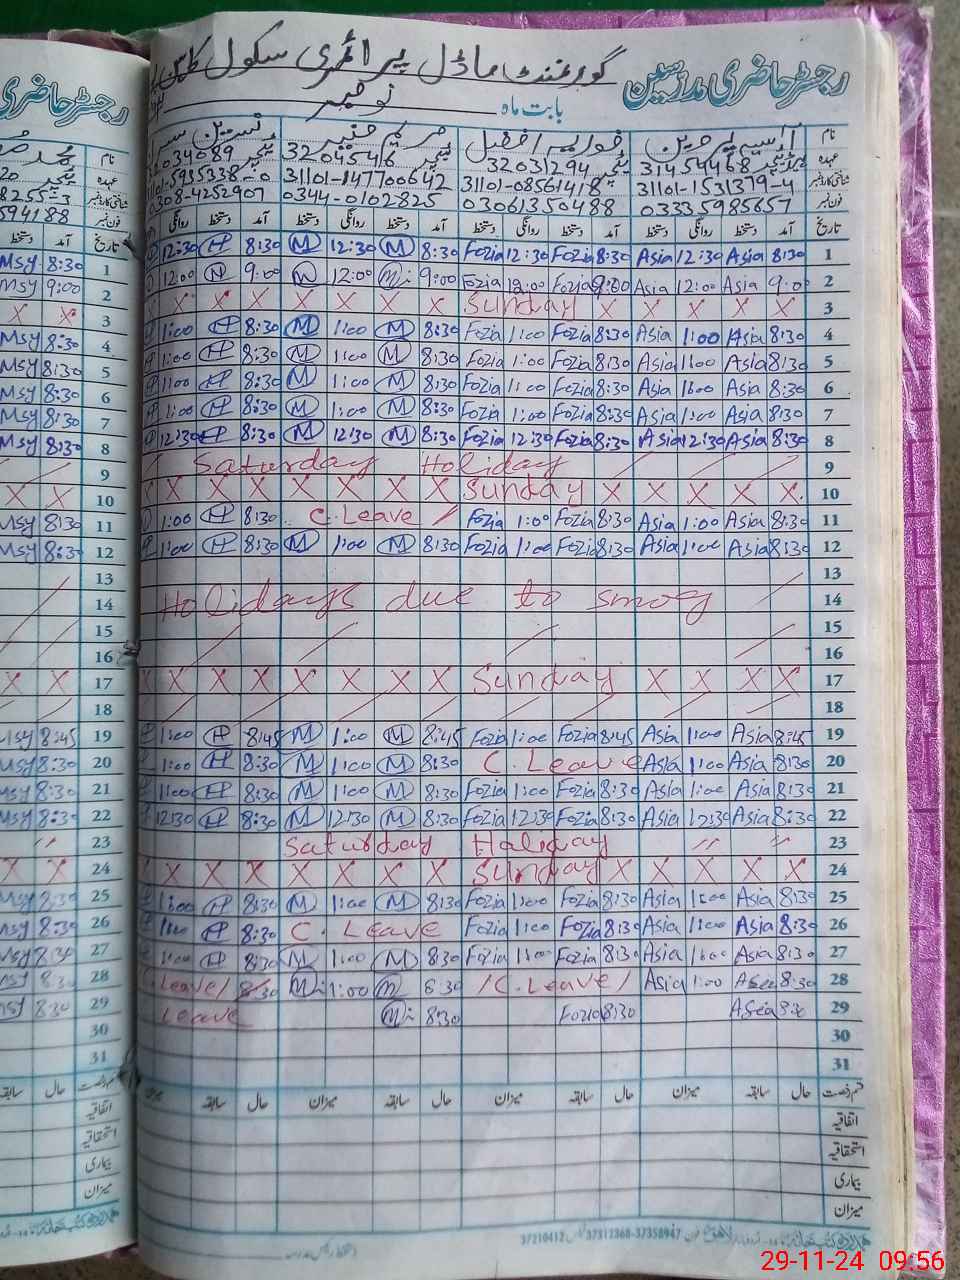 رجسٹر حاضری مدرسین گورنمنٹ ماڈل پرائمری سکول
بابت ماہ نومبر
نام آسیہ پروین فوزیہ افضل مریم حنیف نسرین
عہدہ 31454468 ٹیچر 32031294 ٹیچر 32045416 ٹیچر 32034089
شناختی کارڈ نمبر 31101-1531379-4 31101-08561418 31101-147700642 31101-5935338-0
فون نمبر 03335985657 03061350488 0344-0102825 0308-4252907
تاریخ آمد دستخط روانگی دستخط آمد دستخط روانگی دستخط آمد دستخط روانگی دستخط آمد دستخط روانگی
12:30 H 8:30 M 12:30 M 8:30 Fozia 12:30 Fozia 8:30 Asia 12:30 Asia 8:30 1
12:00 H 9:00 M 12:00 M 9:00 Fozia 12:00 Fozia 9:00 Asia 12:00 Asia 9:00 2
X X X X X X X Sunday X X X X 3
1:00 H 8:30 M 1:00 M 8:30 Fozia 1:00 Fozia 8:30 Asia 1:00 Asia 8:30 4
1:00 H 8:30 M 1:00 M 8:30 Fozia 1:00 Fozia 8:30 Asia 1:00 Asia 8:30 5
1:00 H 8:30 M 1:00 M 8:30 Fozia 1:00 Fozia 8:30 Asia 1:00 Asia 8:30 6
1:00 H 8:30 M 1:00 M 8:30 Fozia 1:00 Fozia 8:30 Asia 1:00 Asia 8:30 7
12:30 H 8:30 M 12:30 M 8:30 Fozia 12:30 Fozia 8:30 Asia 12:30 Asia 8:30 8
Saturday Holiday 9
X X X X X X X Sunday X X X X 10
1:00 H 8:30 C.Leave Fozia 1:00 Fozia 8:30 Asia 1:00 Asia 8:30 11
1:00 H 8:30 M 1:00 M 8:30 Fozia 1:00 Fozia 8:30 Asia 1:00 Asia 8:30 12
13
Holidays due to smog 14
15
16
X X X X X X X Sunday X X X X 17
18
1:00 H 8:45 M 1:00 M 8:45 Fozia 1:00 Fozia 8:45 Asia 1:00 Asia 8:45 19
1:00 H 8:30 M 1:00 M 8:30 C.Leave Asia 1:00 Asia 8:30 20
1:00 H 8:30 M 1:00 M 8:30 Fozia 1:00 Fozia 8:30 Asia 1:00 Asia 8:30 21
12:30 H 8:30 M 12:30 M 8:30 Fozia 12:30 Fozia 8:30 Asia 12:30 Asia 8:30 22
Saturday Haliday 23
X X X X X X X Sunday X X X X 24
1:00 H 8:30 M 1:00 M 8:30 Fozia 1:00 Fozia 8:30 Asia 1:00 Asia 8:30 25
1:00 H 8:30 C. Leave Fozia 1:00 Fozia 8:30 Asia 1:00 Asia 8:30 26
1:00 H 8:30 M 1:00 M 830 Fozia 1:00 Fozia 8:30 Asia 1:00 Asia 8:30 27
Leave/ 8:30 M 1:00 M 8:30 /C.Leave/ Asia 1:00 Asia 8:30 28
Leave M 8:30 Fozia 8:30 Asia 8:30 29
30
31
قسم رخصت حال سابقہ میزان حال سابقہ میزان حال سابقہ میزان حال سابقہ میزان
اتفاقیہ
استحقاقیہ
بیماری
میزان
دستخط رئیس مدرسہ
37210412 37312368-37350947
رجسٹر حاضری
594188
دستخط آمد تاریخ
Msy 8:30 1
Msy 9:00 2
X X 3
Msy 8:30 4
Msy 8:30 5
Msy 8:30 6
Msy 8:30 7
Msy 8:30 8
9
X X 10
Msy 8:30 11
Msy 8:30 12
13
14
15
16
X X 17
18
Msy 8:45 19
Msy 8:30 20
Msy 8:30 21
Msy 8:30 22
23
X X 24
Msy 8:30 25
Msy 8:30 26
Msy 8:30 27
Msy 8:30 28
Msy 8:30 29
30
31
سابقہ حال قسم رخصت
اتفاقیہ
استحقاقیہ
بیماری
میزان
29-11-24 09:56